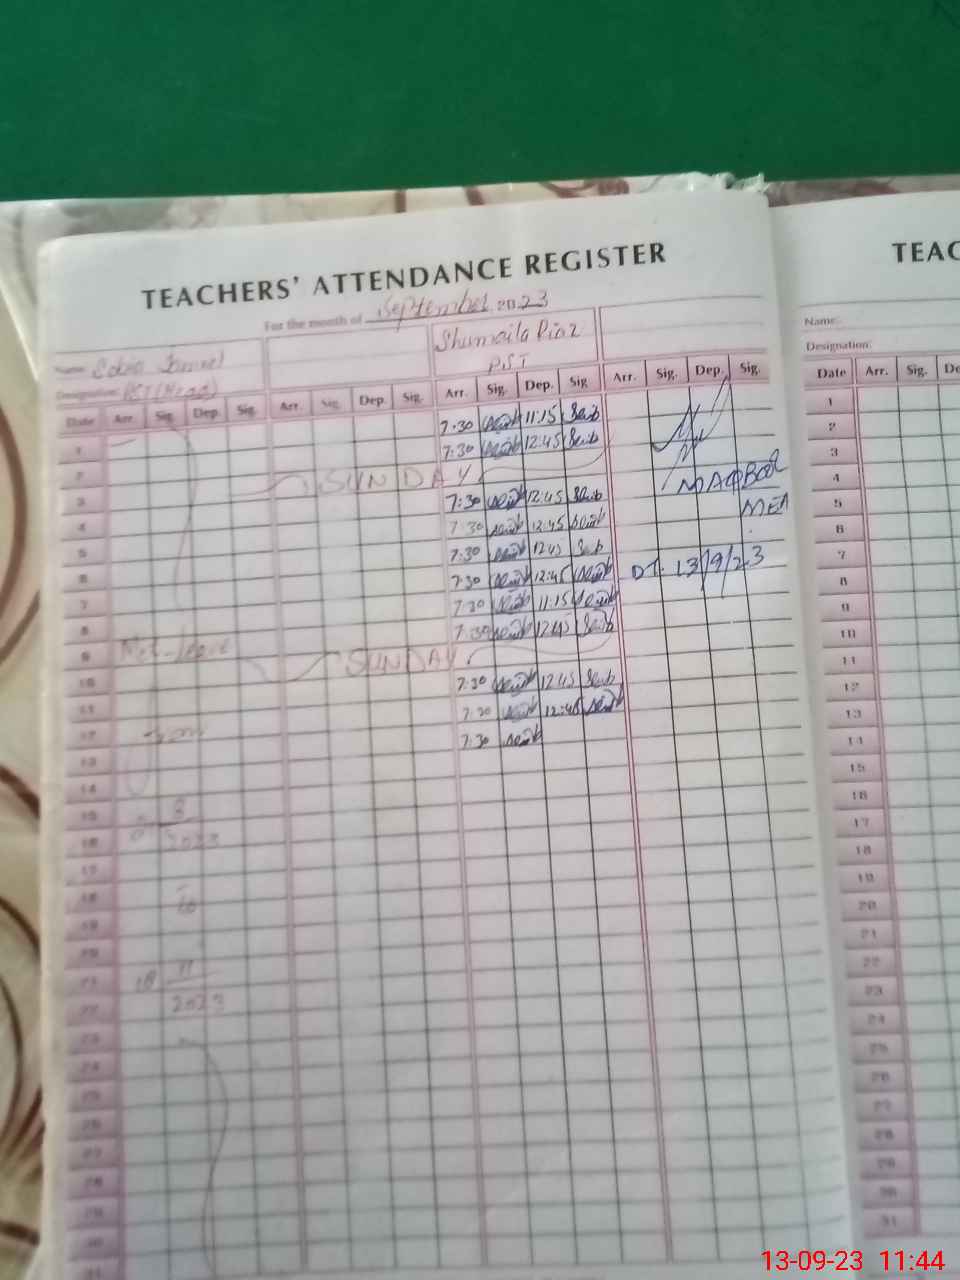 TEACHERS' ATTENDANCE REGISTER
For the month of September 2023
Name:
Shumaila Riaz
Designation: PST (Head)
PST
Date Arr. Sig. Dep. Sig. Arr. Sig. Dep. Sig. Arr. Sig. Dep. Sig. Arr. Sig. Dep. Sig.
1 7:30 11:15
2 7:30 12:45
3 SUNDAY
4 7:30 12:45
5 7:30 12:45
6 7:30 12:45
7 7:30 12:45
8 7:30 11:15
9 7:30 12:45
10 SUNDAY
11 7:30 12:45
12 7:30 12:45
13 7:30
14
15
16
17
18
19
20
21
22
23
24
25
26
27
28
29
30
31
MAQBOOL
MEA
DT. 13/9/23
Leave
from
8
2023
To
18 11
2023
TEAC
Name:
Designation:
Date Arr. Sig. De
1
2
3
4
5
6
7
8
9
10
11
12
13
14
15
16
17
18
19
20
21
22
23
24
25
26
27
28
29
30
31
13-09-23 11:44